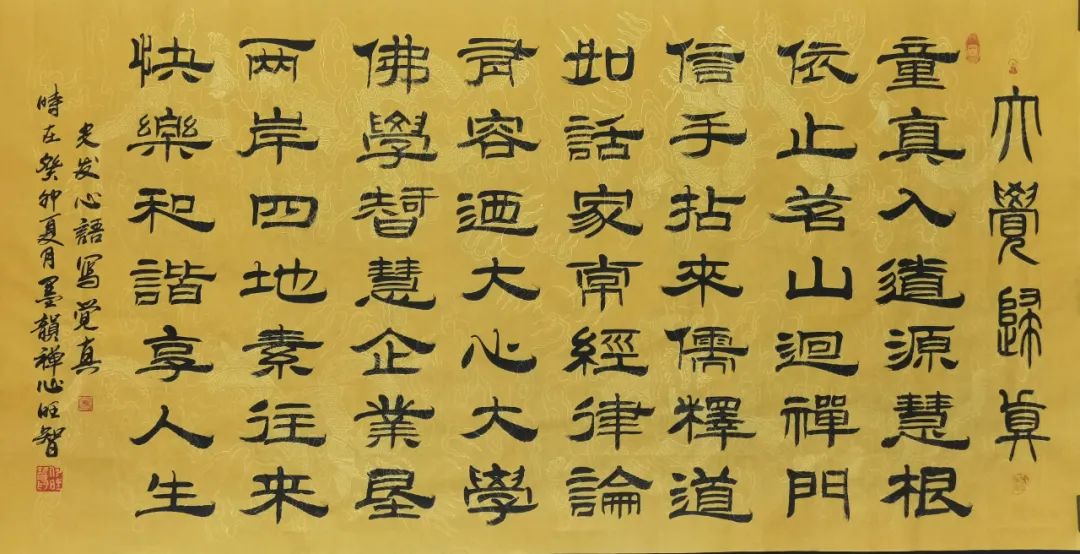 大覺歸真
童真入道源慧根
依止茗山迴禪門
信手拈來儒釋道
如話家常經律論
有容迺大心大學
佛學智慧企業垦
两岸四地素往来
快樂和諧享人生
发心語写觉真
時在癸卯夏月墨韻禅心旺智